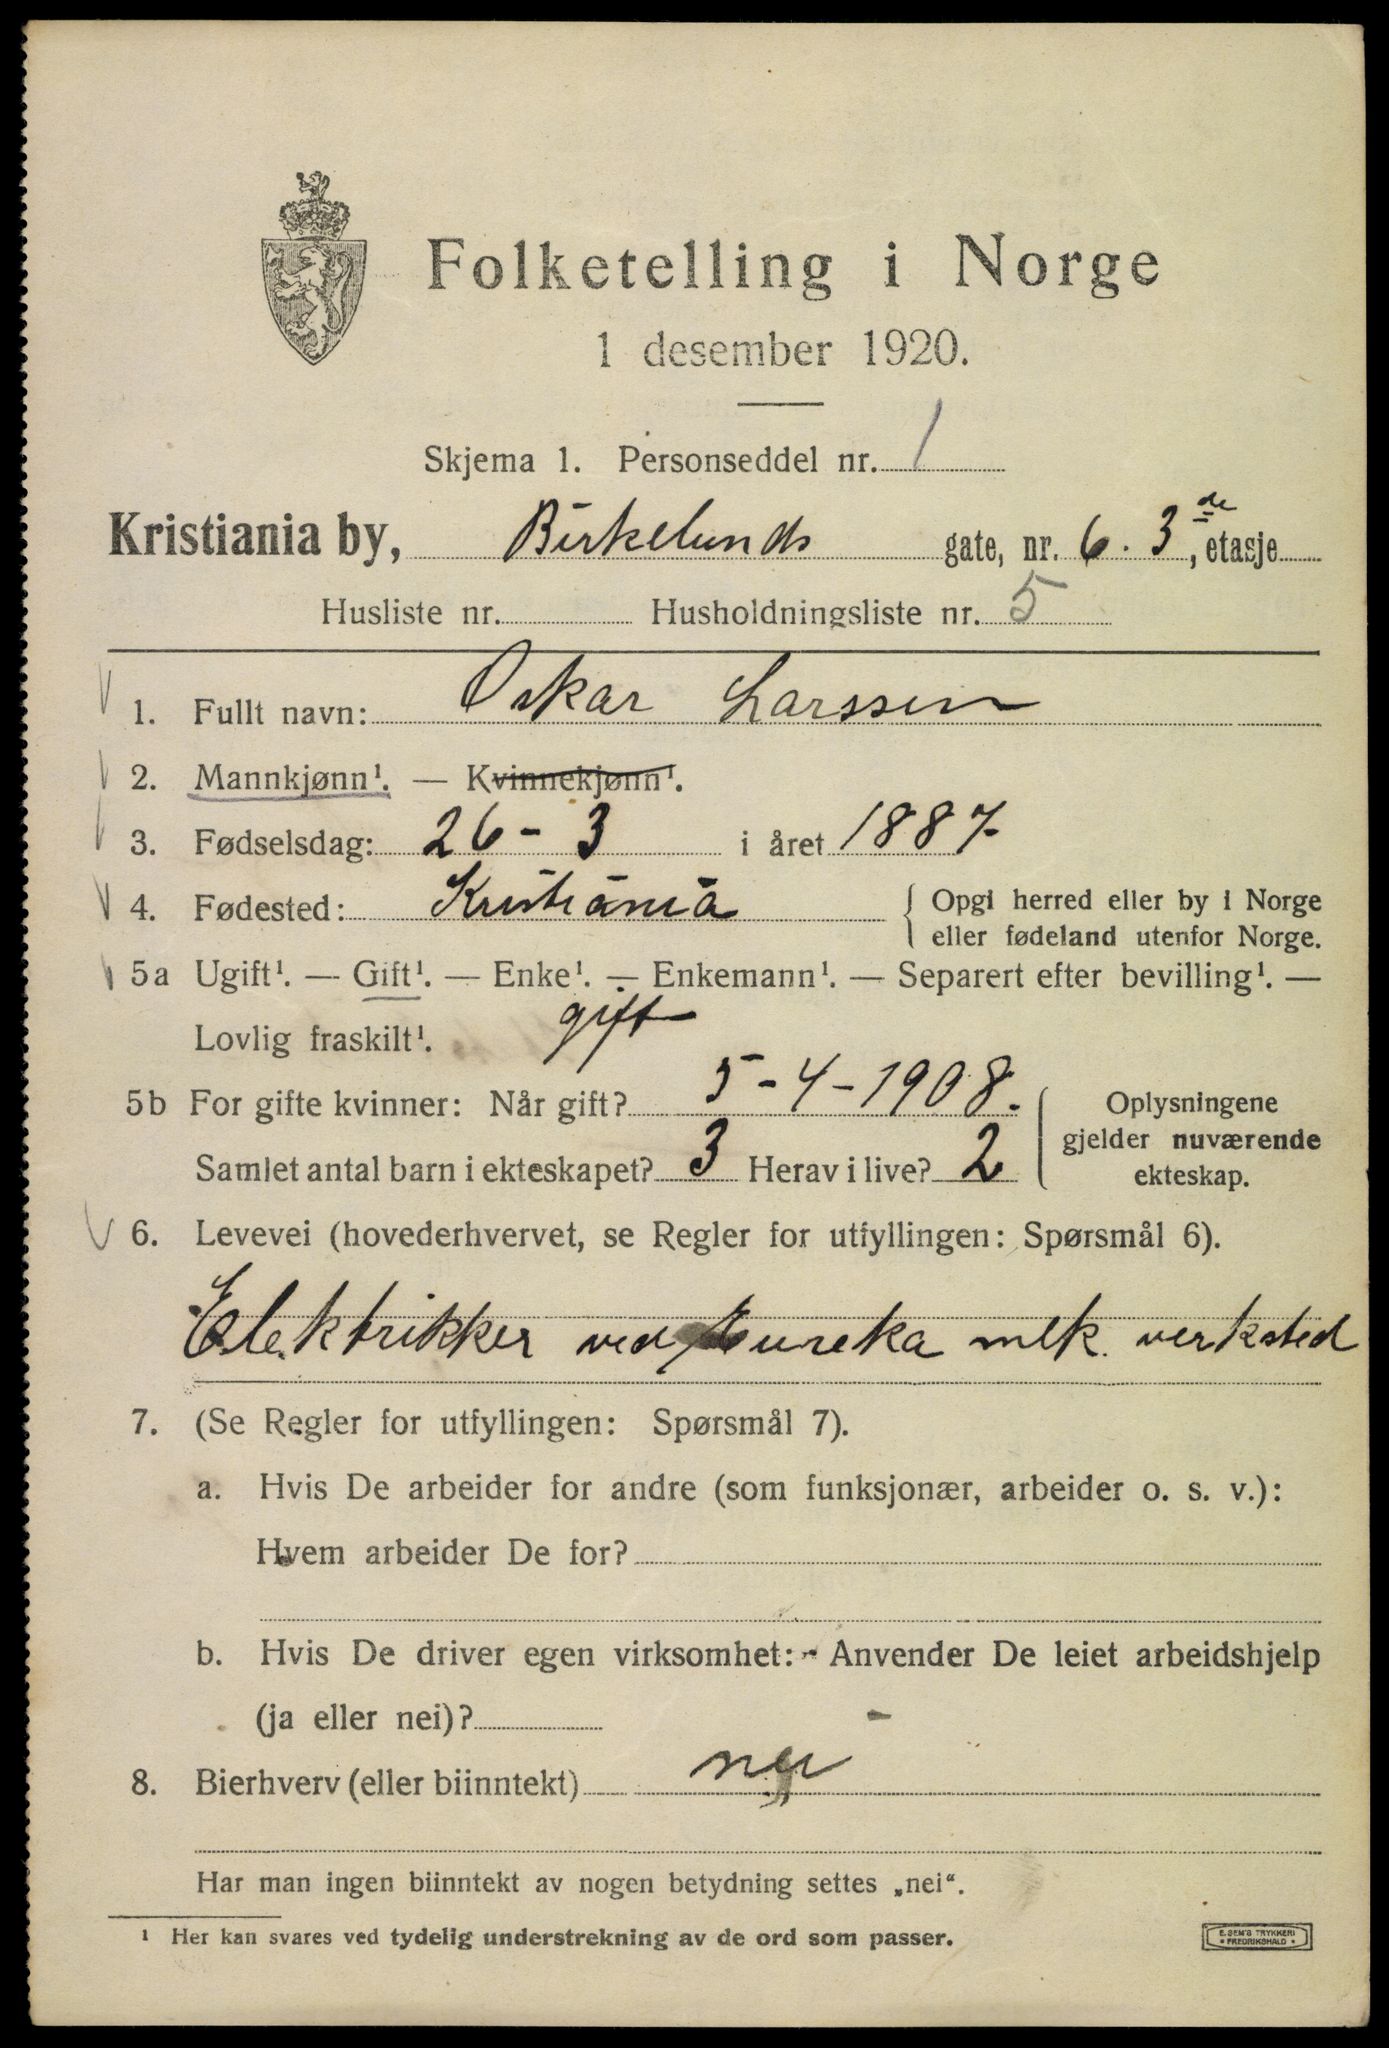 Folketelling i Norge
1 desember 1920.
Skjema 1. Personseddel nr. 1
Kristiania by, Birkelunds gate, nr. 6. 3de, etasje
Husliste nr. Husholdningsliste nr. 5
1. Fullt navn: Oskar Larssen
2. Mannkjønn¹. — Kvinnekjønn¹.
3. Fødselsdag: 26 - 3 i året 1887
4. Fødested: Kristiania { Opgi herred eller by i Norge
eller fødeland utenfor Norge.
5a Ugift¹. — Gift¹. — Enke¹. — Enkemann¹. — Separert efter bevilling¹. —
Lovlig fraskilt¹. gift
5b For gifte kvinner: Når gift? 5-4-1908. { Oplysningene
gjelder nuværende
Samlet antal barn i ekteskapet? 3 Herav i live? 2 ekteskap.
6. Levevei (hovederhvervet, se Regler for utfyllingen: Spørsmål 6).
Elektrikker ved Eureka mek. verksted
7. (Se Regler for utfyllingen: Spørsmål 7).
a. Hvis De arbeider for andre (som funksjonær, arbeider o. s. v.):
Hvem arbeider De for?
b. Hvis De driver egen virksomhet: - Anvender De leiet arbeidshjelp
(ja eller nei)? -
8. Bierhverv (eller biinntekt) nei
Har man ingen biinntekt av nogen betydning settes „nei“.
¹ Her kan svares ved tydelig understrekning av de ord som passer.
E. SEM'S TRYKKERI
• FREDRIKSHALD •